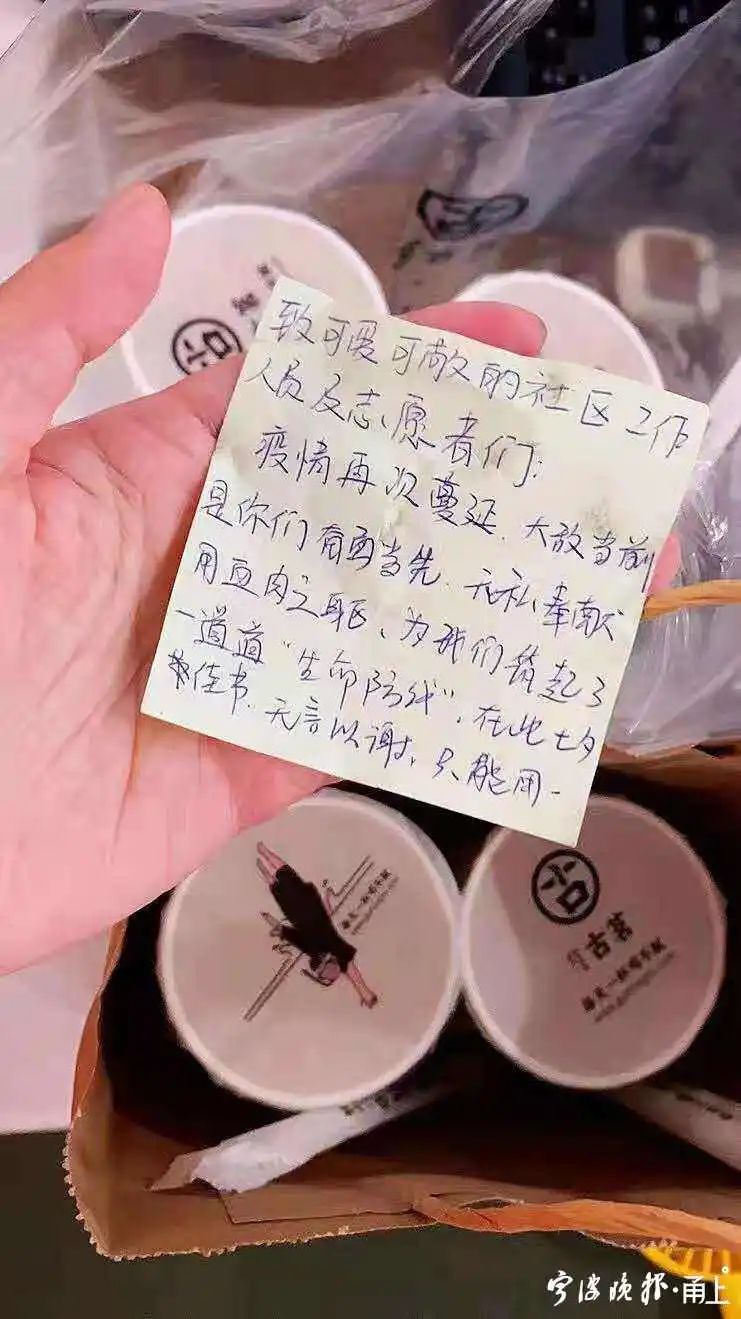 致可爱可敬的社区工作
人员及志愿者们:
疫情再次蔓延、大敌当前
是你们奋勇当先、无私奉献
用血肉之躯、为我们筑起了
一道道“生命防线”，在此七夕
佳节、无言以谢，只能用一
古茗
每天一杯喝不腻
每天一杯喝不腻
宁波晚报·甬上